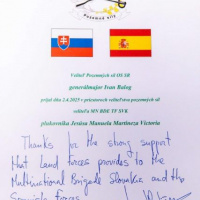 Pozemné sily
Veliteľ Pozemných síl OS SR
generálmajor Ivan Balog
prijal dňa 2.4.2025 v priestoroch veliteľstva pozemných síl
veliteľa MN BDE TF SVK
plukovníka Jesúsa Manuela Martíneza Victoria
Thanks for the strong support
that Land forces provides to the
Multinational Brigade Slovakia and the
Spanish forces.